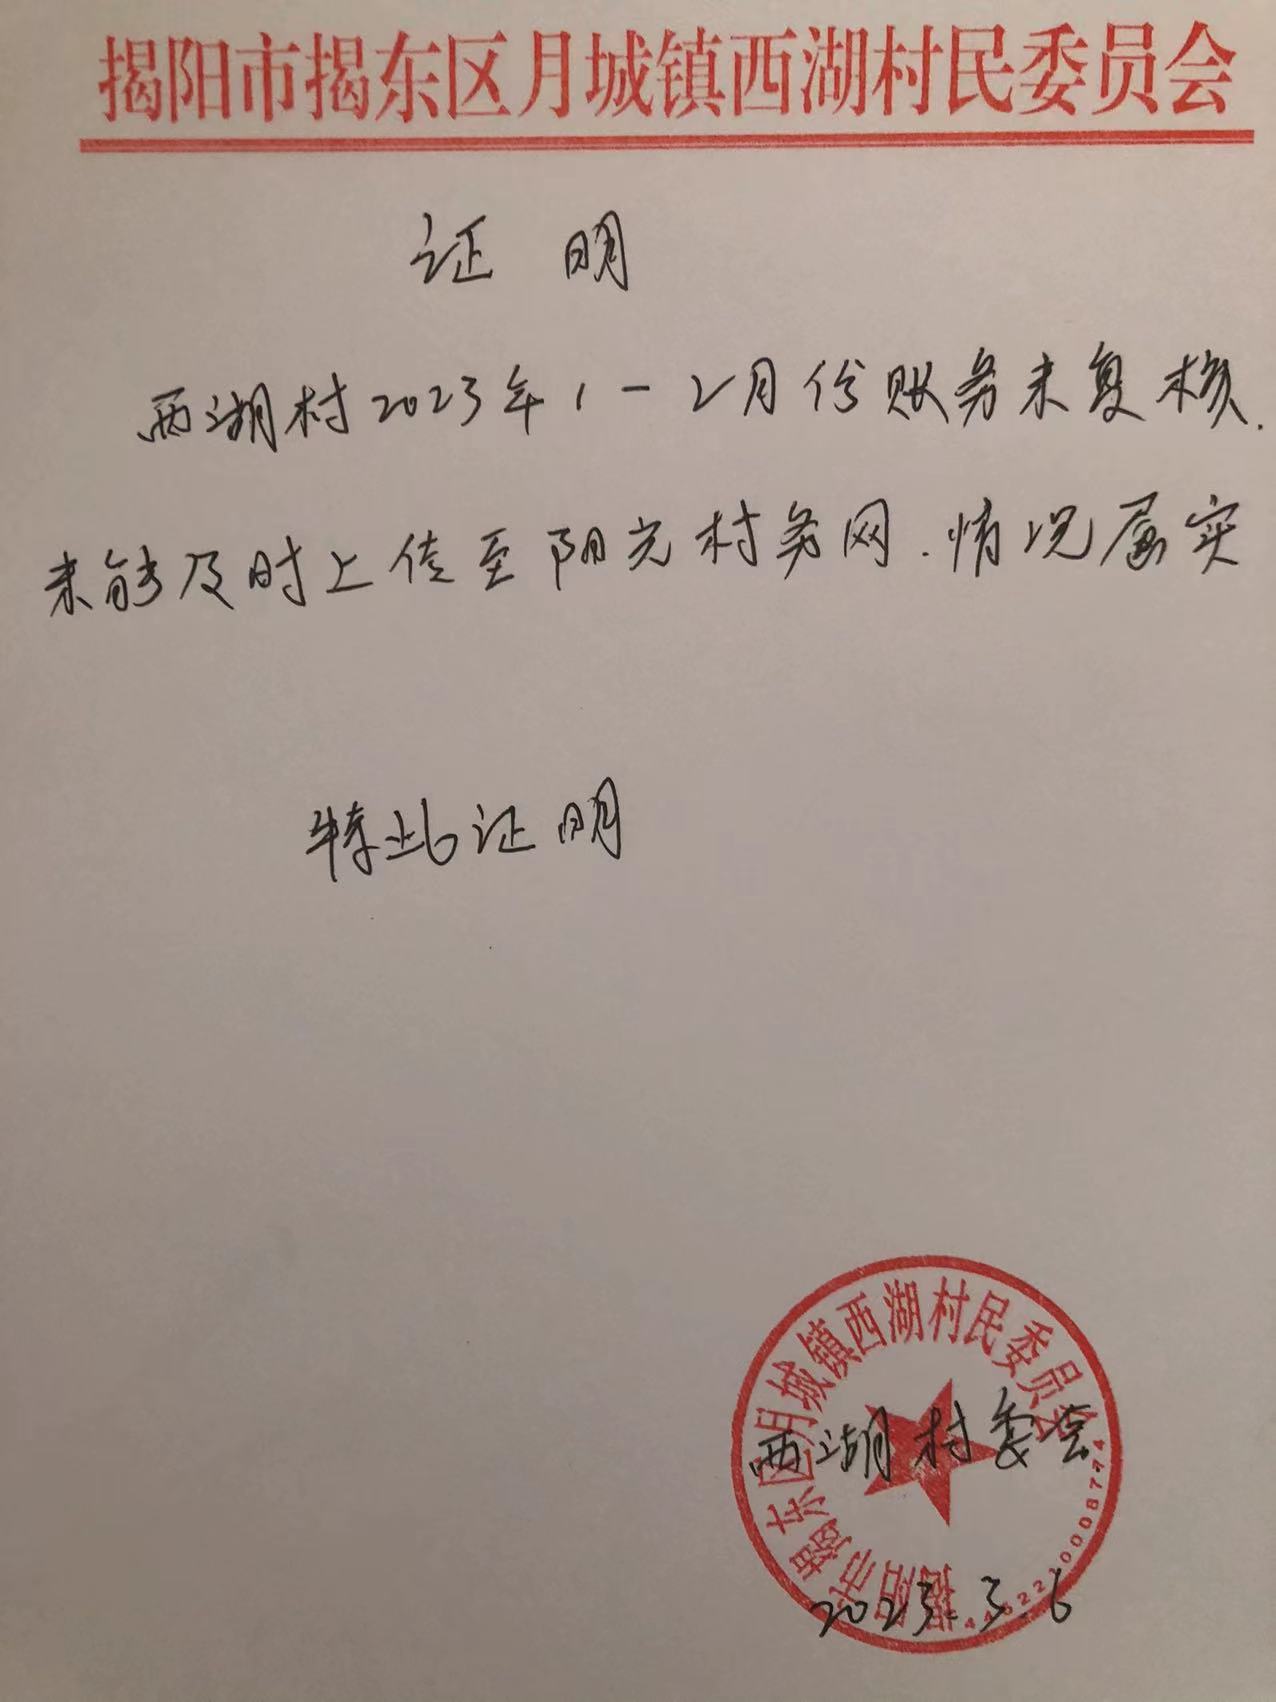 揭阳市揭东区月城镇西湖村民委员会
证 明
西湖村2023年1-2月份账务未复核.
未能及时上传至阳光村务网.情况属实
特此证明
揭阳市揭东区月城镇西湖村民委员会
西湖村委会
2023.3.6